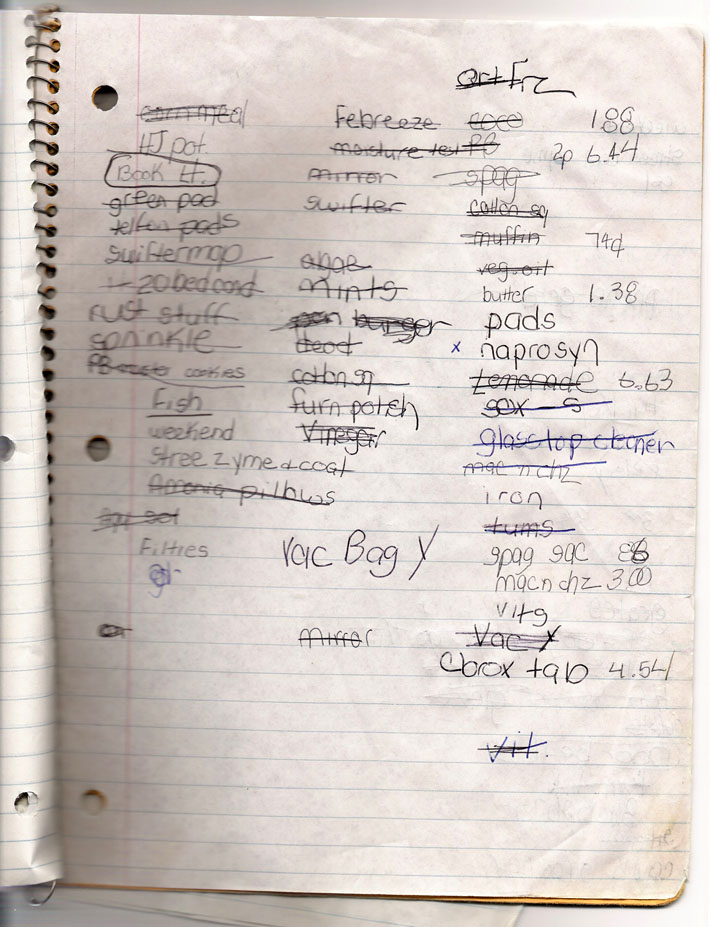 Frz
corn meal
HJ pot.
Book H.
green pad
telfon pads
swiftermop
20 bed cond
rust stuff
sprinkle
PB easter cookies
Fish
weekend
Stree zyme & coat
pillows
Filties
Febreeze
moisture
mirror
swifter
mints
pen burger
deod
cotton sq
furn polish
Vinegar
Vac Bag Y
mirror
coco 1.88
PB 2p 6.44
spag
cotton sq
muffin 74¢
veg. oil
butter 1.38
pads
x naprosyn
Lemonade 6.63
sox s
glasstop cleaner
mac n chz
iron
tums
spag sac 88
mac n chz 3.00
vits
Vac Y
Clorox tab 4.54
vit.